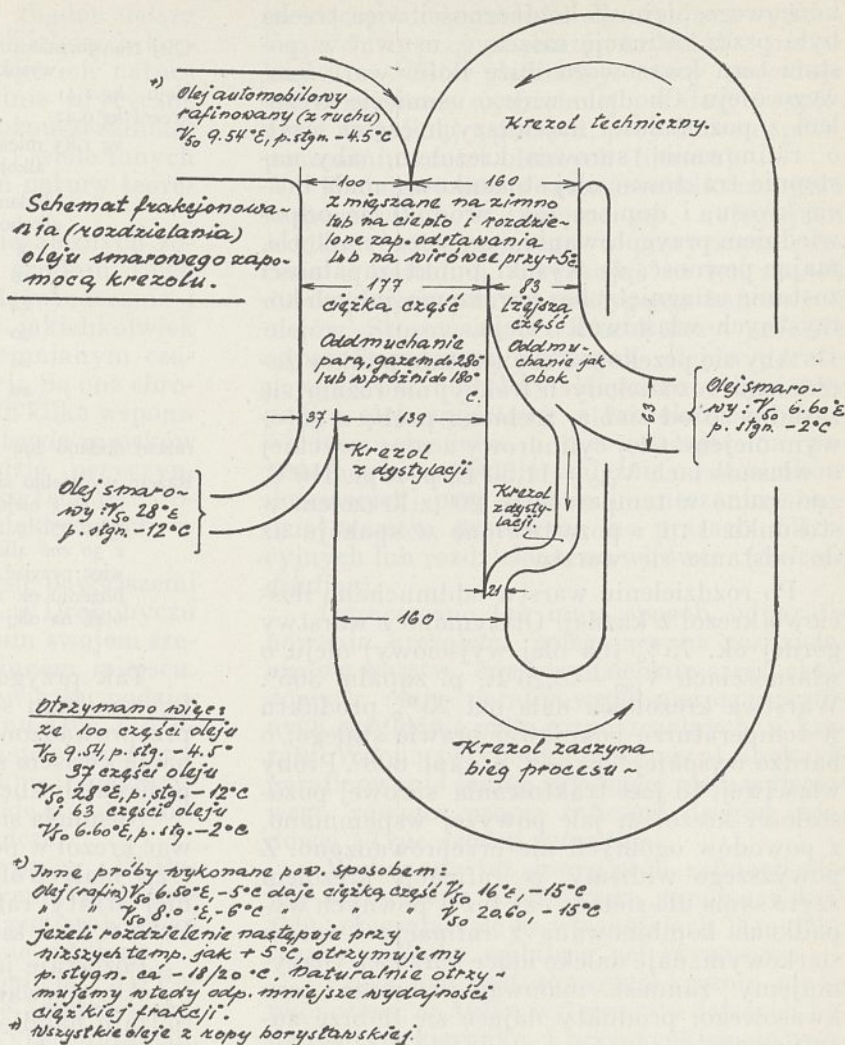 *) Olej automobilowy
rafinowany (z ruchu)
V50 9.54°E, p. stgn. -4.5°C
Krezol techniczny.
100
160
Schemat frakcjonowa-
nia (rozdzielania)
oleju smarowego zapo-
mocą krezolu.
zmięszane na zimno
lub na ciepło i rozdzie-
lone zap. odstawania
lub na wirówce przy +5°
177
83
ciężka część
lżejsza
część
Oddmuchanie
parą, gazem do 280°
lub w próżni do 180°
C.
Oddmu-
chanie jak
obok
63
Olej smaro-
wy: V50 6.60°E
p. stgn. -2°C
37
139
Krezol
z dystylacji
Olej smaro-
wy: V50 28°E
p. stgn. -12°C
Krezol
z dysty-
lacji.
21
160
Krezol zaczyna
bieg procesu~
Otrzymano więc:
ze 100 części oleju
V50 9.54, p. stg. -4.5°
37 części oleju
V50 28°E, p. stg. -12°C
i 63 części oleju
V50 6.60°E, p. stg. -2°C
+) Inne próby wykonane pow. sposobem:
Olej (rafin) V50 6.50°E, -5°C daje ciężką część V50 16°E, -15°C
" " V50 8.0°E, -6°C " " " V50 20.60, -15°C
jeżeli rozdzielenie następuje przy
niższych temp. jak +5°C, otrzymujemy
p. stygn. cá -18/20°C. Naturalnie otrzy-
mujemy wtedy odp. mniejsze wydajności
ciężkiej frakcji.
*) Wszystkie oleje z ropy borysławskiej.